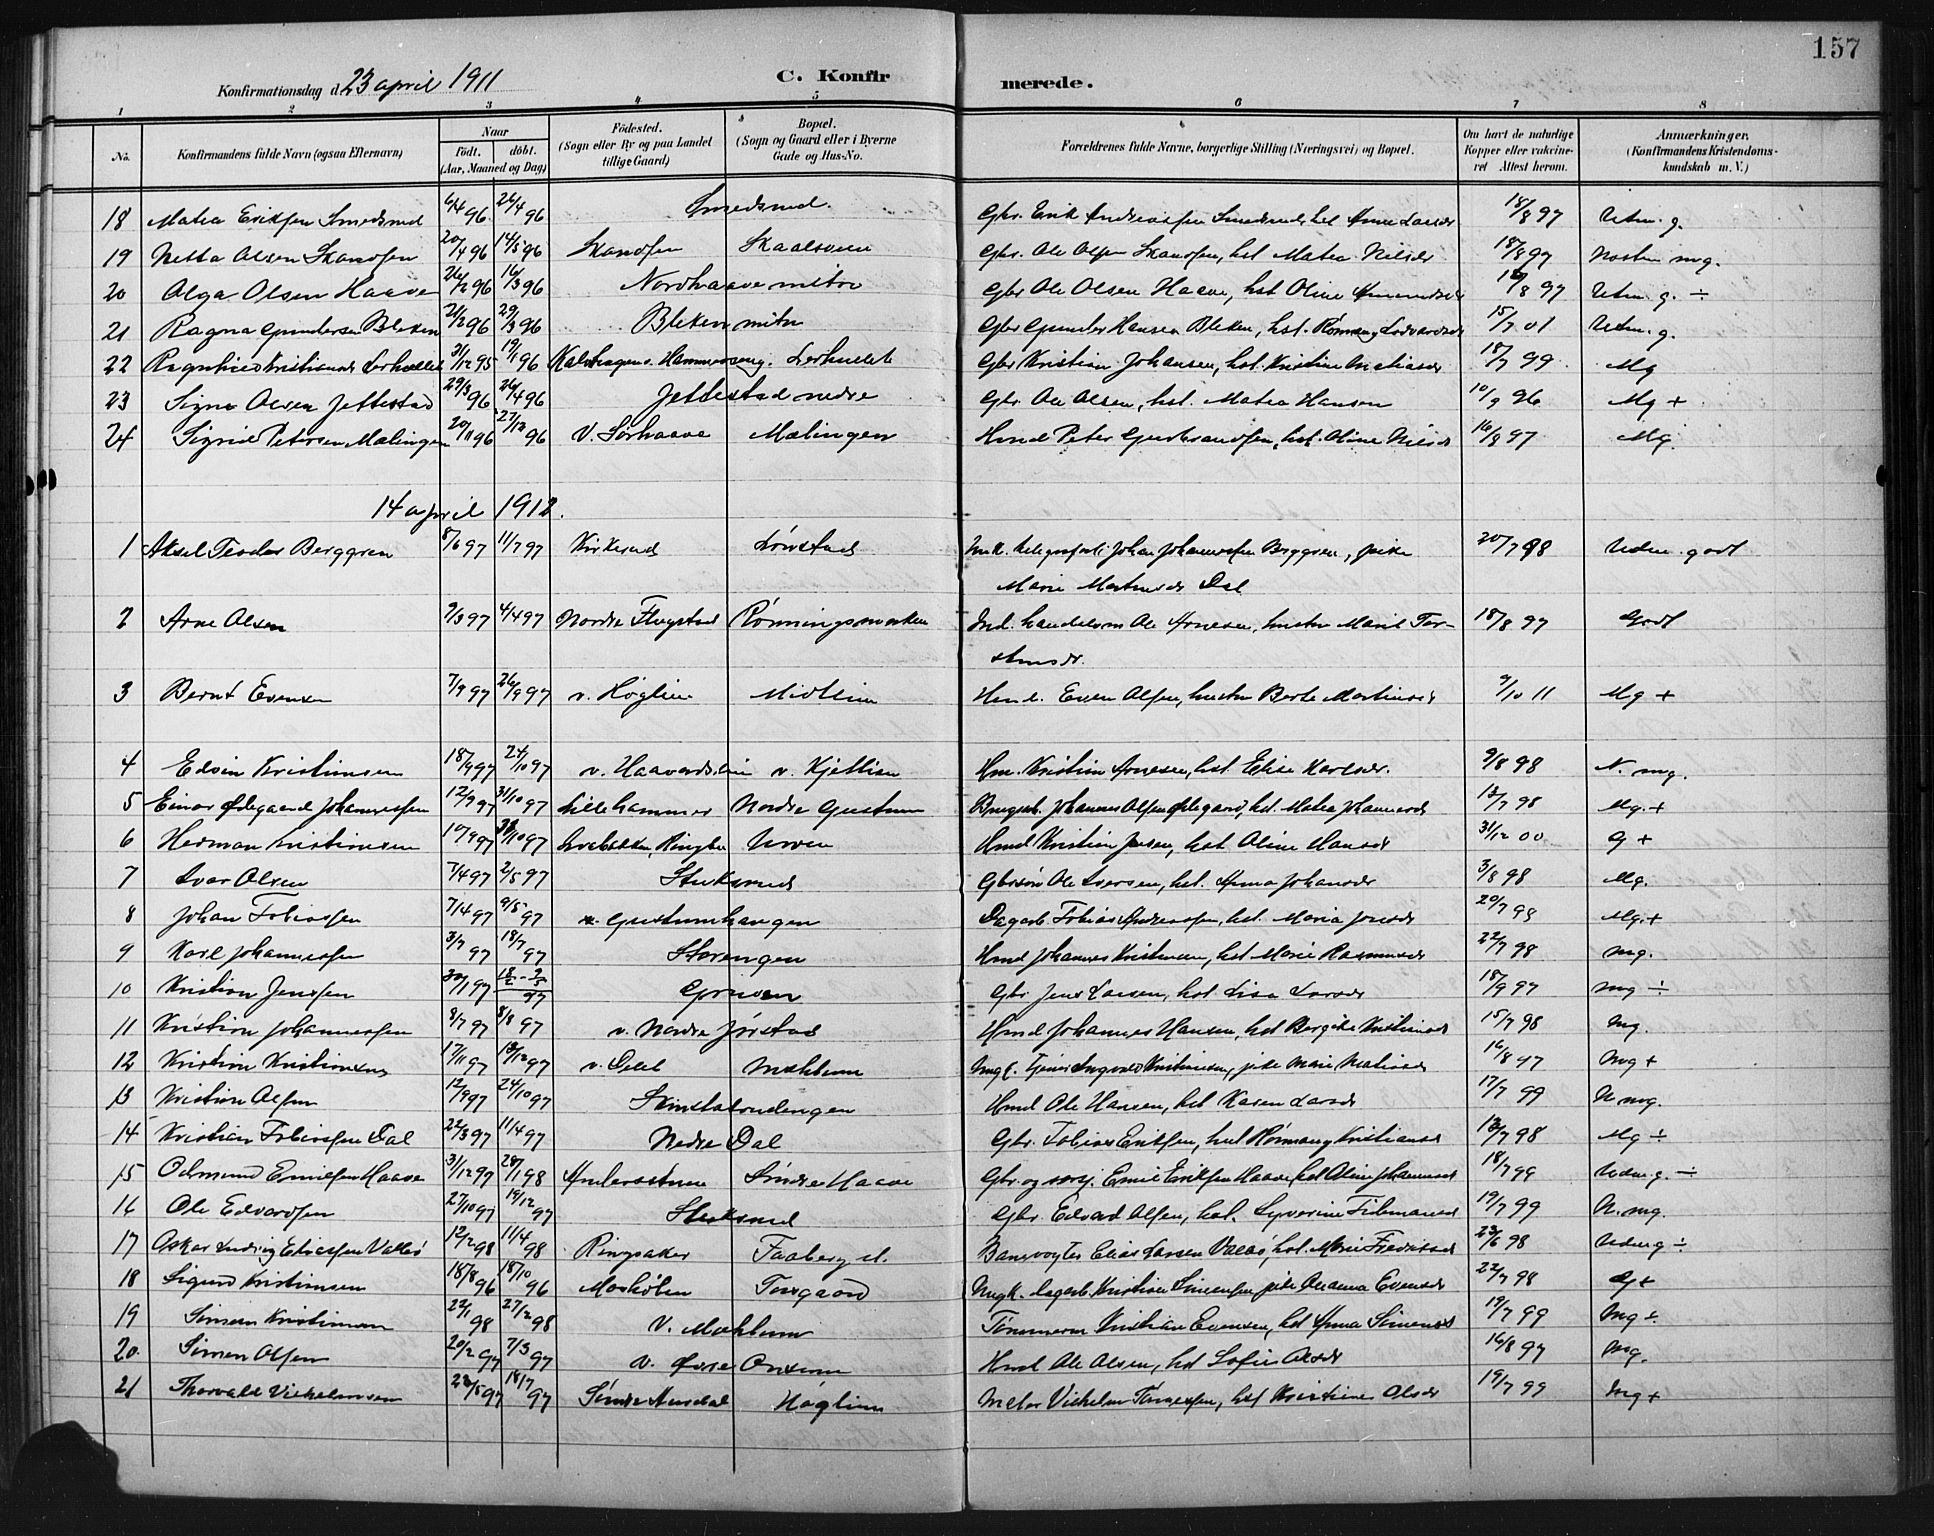 157
Konfirmationsdag d. 23 april 1911 C. Konfirmerede.
1 2 3 4 5 6 7 8
No. Konfirmandens fulde Navn (ogsaa Efternavn) Naar født. døbt. (Aar, Maaned og Dag) Fødested. (Sogn eller By og paa Landet tillige Gaard) Bopæl. (Sogn og Gaard eller i Byerne Gade og Hus-No. Forældrenes fulde Navne, borgerlige Stilling (Næringsvei) og Bopæl. Om havt de naturlige Kopper eller vakcineret Attest herom. Anmærkninger. (Konfirmandens Kristendomskundskab m. V.)
18 Matea Eriksen Smedsrud 6/4 96 26/4 96 Smedsrud. Gbr. Erik Andreassen Smedsrud, hst Anne Larsdr 18/8 97 Udm. g.
19 Netta Olsen Skandsen 20/4 96 14/5 96 Skandsen Skaalsveen Gbr. Ole Olsen Skandsen, hst Matea Nilsdr 18/8 97 Nesten mg.
20 Olga Olsen Haave 26/2 96 16/3 96 Nordhaave mitre Gbr Ole Olsen Haave, hst Oline Amundsdr 8 97 Udm. g. ÷
21 Ragna Gundersen Bleken 21/2 96 29/3 96 Bleken mitre Gbr Gunder Hansen Bleken, hst. 15/7 01 Udm. g.
22 31/12 95 19/1 96 Gbr Kristian Johansen, hst. Kristine Matiasdr 18/7 99 Mg
23 Signe Olsen Jettestad 29/3 96 26/4 96 Jettestad nedre Gbr. Ole Olsen, hst. Matea Hansen 10/9 96 Mg +
24 Sigrid Petersen Mælingen 20/11 96 27/12 96 v. Sørhaave Mælingen Hmd Peter Gudbrandsen, hst. Oline Nilsdr 16/8 97 Mg.
14 april 1912.
1 Aksel Teodor Berggren 8/6 97 11/7 97 Kirkerud Lønstad Johan Johannessen Berggren, pike 20/7 98 Udm. godt
Marie Dal
2 Arne Olsen 2/3 97 4/4 97 Nordre Flugstad Rønningsmarken Ind. handelsm Ole Arnesen, hustru Marie Tor- 18/8 97 Godt
stensdr.
3 Bernt Evensen 7/9 97 26/9 97 v. Høglien Midtlien Hmd. Even Olsen, hustru Berte Martinsdr 9/10 11 Mg +
4 Edvin Kristiansen 18/9 97 24/10 97 v. Haavardslien v. Kjetlien Hm. Kristian Arnesen, hst. Elise Karlsdr. 9/8 98 N. mg.
5 Einar Ødegaard Johannessen 12/9 97 31/10 97 Lillehammer Nordre Gustum Johannes Olsen Ødegaard, hst. Matea Johannesdr 12/7 98 Mg. +
6 Herman Kristiansen 10/9 97 10 97 Ringbu Hmd Kristian Jensen, hst Oline Hansdr 31/12 00 g +
7 Ivar Olsen 7/4 97 2/5 97 Stuksrud Gbrsøn Ole Iversen, hst. Anna Johansdr 3/8 98 Mg.
8 Johan Tobiassen 7/4 97 9/5 97 Gustumhaugen Dagarb. Tobias Andreassen, hst. Maria Jonsdr 20/7 98 Mg. +
9 Karl Johannessen 3/7 97 18/7 97 Storengen Hmd Johannes Kristiansen, hst Marie Rasmusdr 22/7 98 mg.
10 Kristian Jenssen 30/1 97 Gruven Gbr Jens Larsen, hst. Lisa Larsdr 18/9 97 mg ÷
11 Kristian Johannessen 8/7 97 8/8 97 v. Nordre Jørstad Hmd Johannes Hansen, hst Bergitte Kristiansdr 15/7 98 Mg.
12 Kristian Kristiansen 17/11 97 12 97 v. Dal Ungk. Tjener Ingvald Kristiansen, pike Marie Matiasdr 16/8 97 Mg +
13 Kristian Olsen 12/9 97 24/10 97 Skinstadrudengen Hmd Ole Hansen, hst Karen Larsdr 17/7 99 N mg.
14 Kristian Tobiassen Dal 22/3 97 11/4 97 Nedre Dal Gbr. Tobias Eriksen, hst Rønnaug Kristiansdr 7 98 Mg ÷
15 Odmund Emilsen Haave 31/12 97 28/1 98 Søndre Haave Gbr. og Emil Eriksen Haave, hst Oline Johannesdr 18/7 99 Udm. g. ÷
16 Ole Edvardsen 27/10 97 19/12 97 Stuksrud Gbr. Edvard Olsen, hst. Syverine 19/7 99 N. mg.
17 Oskar Ludvig Eliassen Valbø 12/2 98 11/4 98 Ringsaker Faaberg st. Banevogter Elias Larsen Valbø, hst. Marie Fredriksdr 23/6 98 Udm g ÷
18 Sigurd Kristiansen 18/8 96 18/10 96 Torsgaard Ungk. dagarb. Kristian Simensen, pike Evensdr 22/7 98 G +
19 Simen Kristiansen 22/1 98 27/2 98 v. Tømmerm Kristian Evensen, hst Anna Simensdr 19/7 99 Mg ÷
20 Simen Olsen 20/2 97 7/3 97 v. Øvre Onsum Hmd Ole Olsen, hst Sofie Olsdr 16/8 97 Mg.
21 Thorvald Vilhelmsen 97 18/7 97 Søndre Aursdal Høglien Maler Vilhelm Tønnesen, hst Kristine Olsdr 19/7 99 Mg +